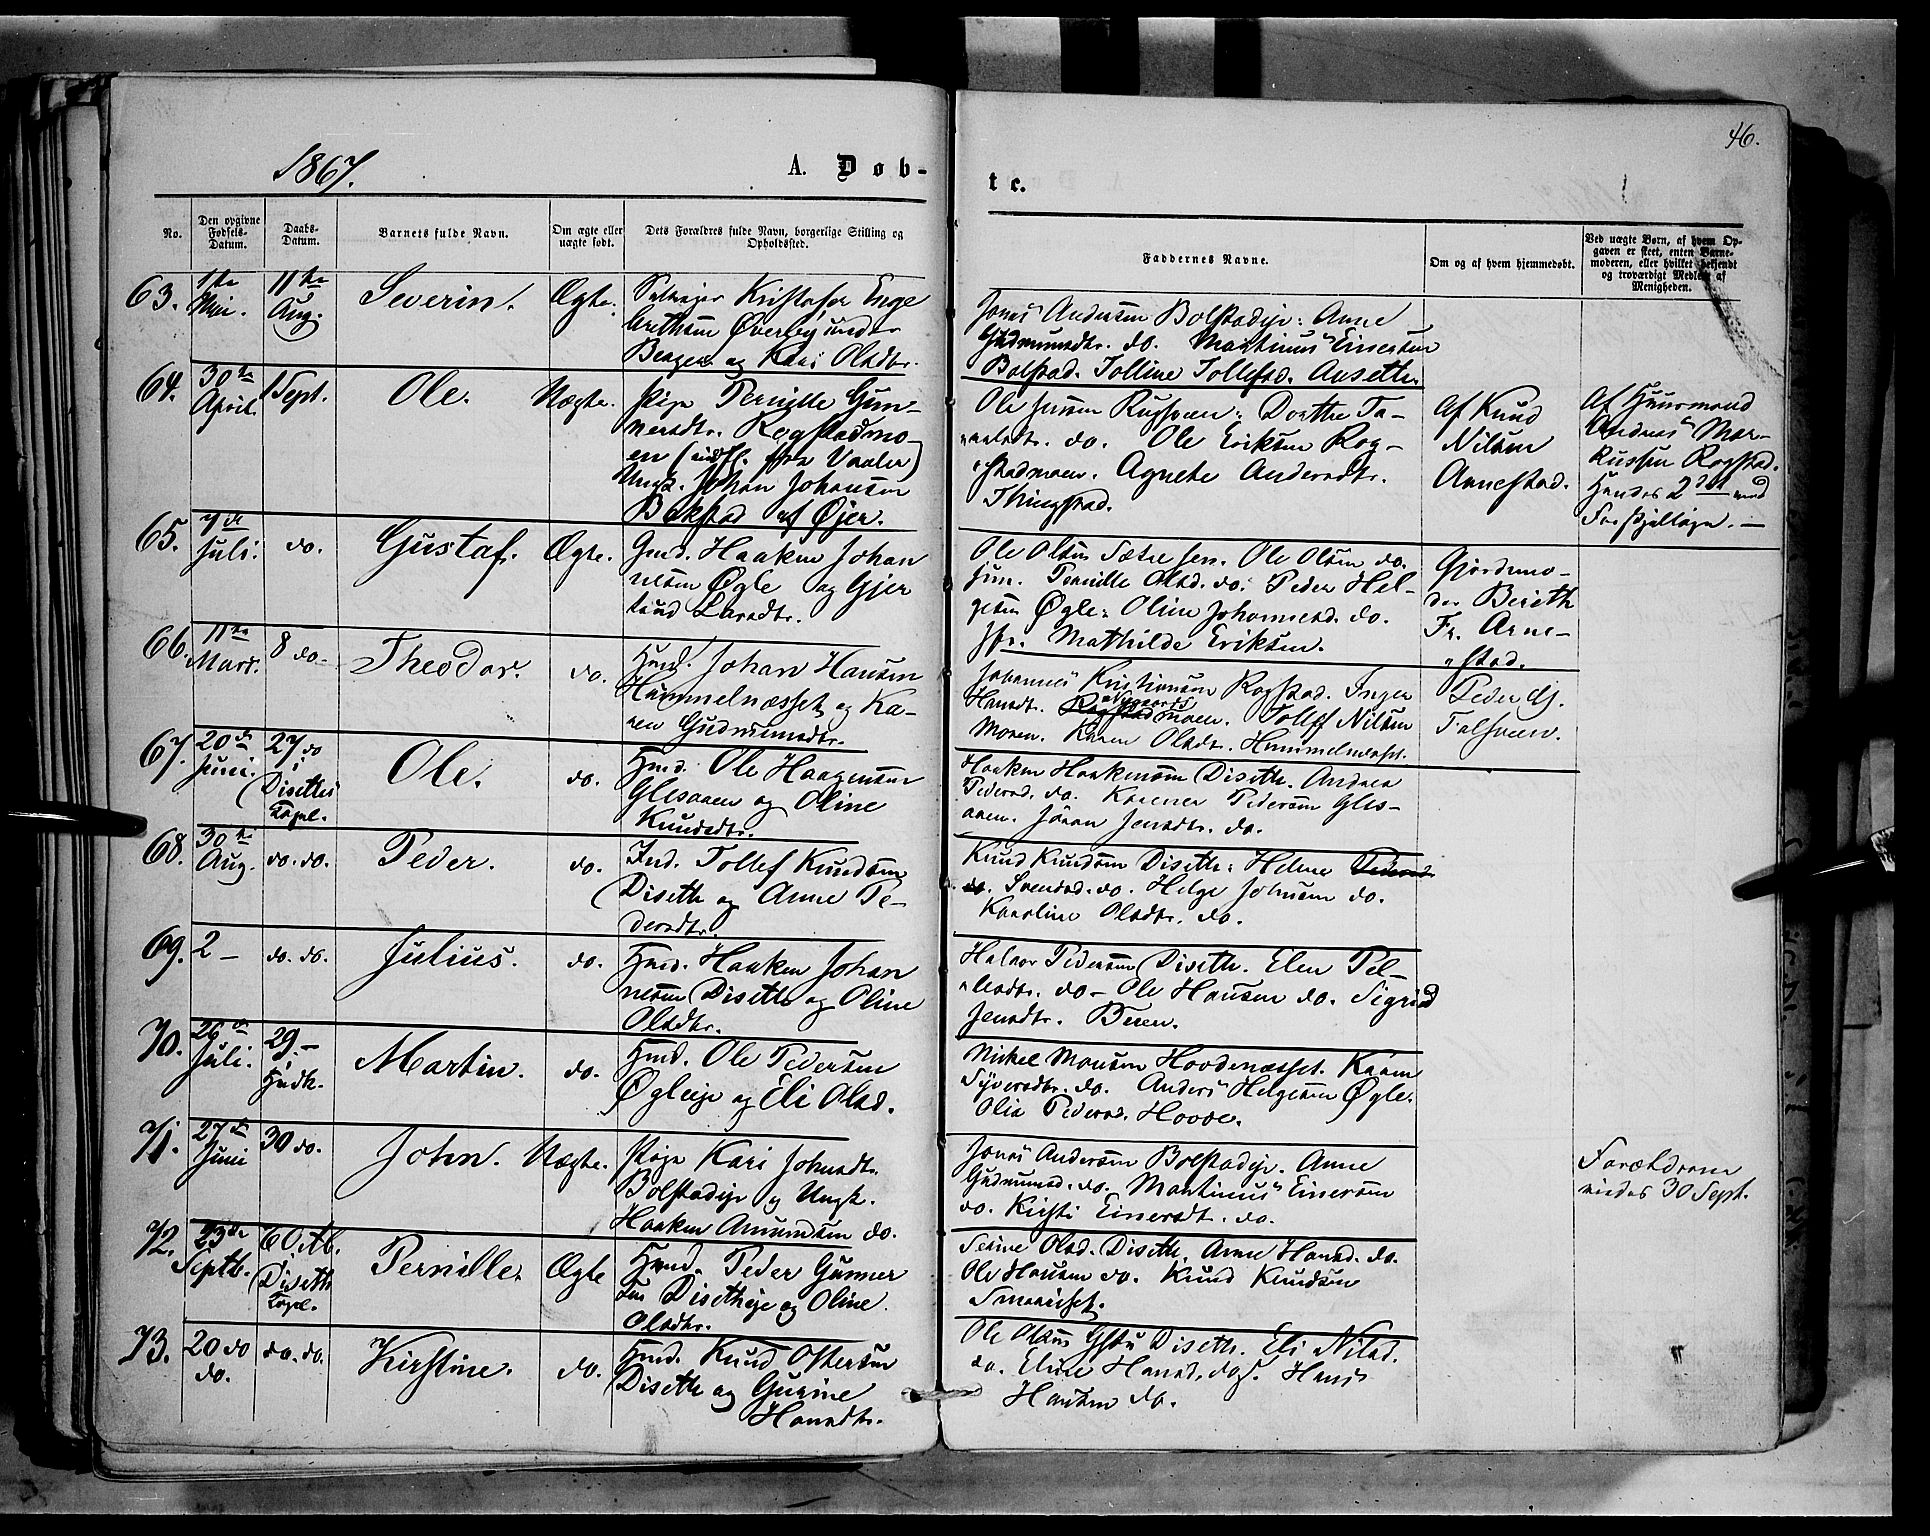 46.
1867.
A. Døb-
te.
No.
Den opgivne
Fødsels-
Datum.
Daabs-
Datum.
Barnets fulde Navn.
Om ægte eller
uægte født.
Dets Forældres fulde Navn, borgerlige Stilling og
Opholdssted.
Faddernes Navne.
Om og af hvem hjemmedøbt.
Ved uægte Børn, af hvem Op-
gaven er skeet, enten Barne-
moderen, eller hvilket bekjendt
og troværdigt Medlem af
Menigheden.
63.
1ste
Mai.
11te
Aug.
Severin.
Ægte.
Kristofer Enge
bretsen Øverby under
Berger og Kari Olsdtr.
Jonas Andersen Bolstadeje. Anne
Gudmundsdtr. do. Martinus Einersen
Bolstad. Tolline Tollefsd. Aasetten
64.
30te
April.
1 Sept.
Ole.
Uægte.
Pige Pernille Gun-
nersdtr. Rogstadmo-
en (indfl. fra Vaaler)
Ungk. Johan Johansen
Bakstad af Øjer.
Ole Jensen Rugsveen. Dorthe
do. Ole Eriksen Rog-
stadmoen. Agnete Andersdtr.
Thingstad.
Af Knud
Nilsen
Arnestad.
Af Huusmand
Andreas Mar-
kussen Rogstad.
Hendes 2det med
forskjellige. —
65.
7de
Juli.
do.
Gustaf.
Ægte.
Gmd. Haaken Johan
nesen Øgle og Gjer
trud Larsdtr.
Ole Olsen Sætre sen. Ole Olsen do.
jun. Pernille Olsd. do. Peder Hel-
gesen Øgle. Oline Johannesd. do.
Jfr. Mathilde Eriksen.
Gjordemo-
der Berith
Fr. Arne-
stad.
66.
11te
Marts.
8 do.
Theodor.
do.
Hmd. Johan Hansen
Hummelnæsset og Ka-
ren Gudmundsdtr.
Johannes Kristiansen Rogstad. Inger
Hansdt. Rogstadmoen. Tollef Nilsen
Moren. Karen Olsdtr. Hummelnæsset.
Peder Gj.
Falsveen.
67.
20de
Juni.
27 do
i
Diseths
Capel.
Ole.
do.
Hmd. Ole Haagensen
Glesaaen og Oline
Knudsdtr.
Haaken Haakensen Diseth. Andrea
Pedersd. do. Karener Pedersen Gles-
aaen. Jøran Jensdtr. do.
68.
30te
Aug.
do. do.
Peder.
do.
Ind. Tollef Knudsen
Diseth og Anne Pe-
dersdtr.
Knud Knudsen Diseth. Helene Pedersd.
do. Svendsd. do. Helge Johnsen do.
Karoline Olsdtr. do.
69.
2 —
do. do.
Julius.
do.
Hmd. Haaken Johan
nesen Diseth og Oline
Olsdtr.
Halvor Pedersen Diseth. Elen Pel-
lesdtr. do - Ole Hansen do. Sigrid
Jensdtr. Beren.
70.
26de
Juli.
29. —
Hvdk.
Martin.
do.
Hmd. Ole Pedersen
Øgleeje og Eli Olsd.
Mikel Monsen Hovdenæsset. Karen
Syversdtr. do. Anders Helgesen Øgle.
Olia Pedersd. Hovde.
71.
27de
Juni
30 do.
John.
Uægte.
Pige Kari Johnsdtr.
Bolstadeje og Ungk.
Haaken Amundsen do.
Jonas Andersen Bolstadeje. Anne
Gudmundsd. do. Martinus Einersen
do. Kirsti Einersdt. do.
Forældrene
viedes 30 Sept.
72.
23de
Septb.
6 Oktb.
i
Diseth
Capel.
Pernille.
Ægte
Hmd. Peder Gunner
sen Disetheje og Oline
Olsdtr.
Serine Olsd. Diseth. Anne Hansd. do.
Ole Hansen do. Knud Knudsen
Smaariset.
73.
20 do
do.
do. do.
Kirstine.
do.
Hmd. Knud Ostersen
Diseth og Gurine
Hansdtr.
Ole Olsen Diseth. Eli Nilsd.
do. Eline Hansd. do. Hans
Hansen do.